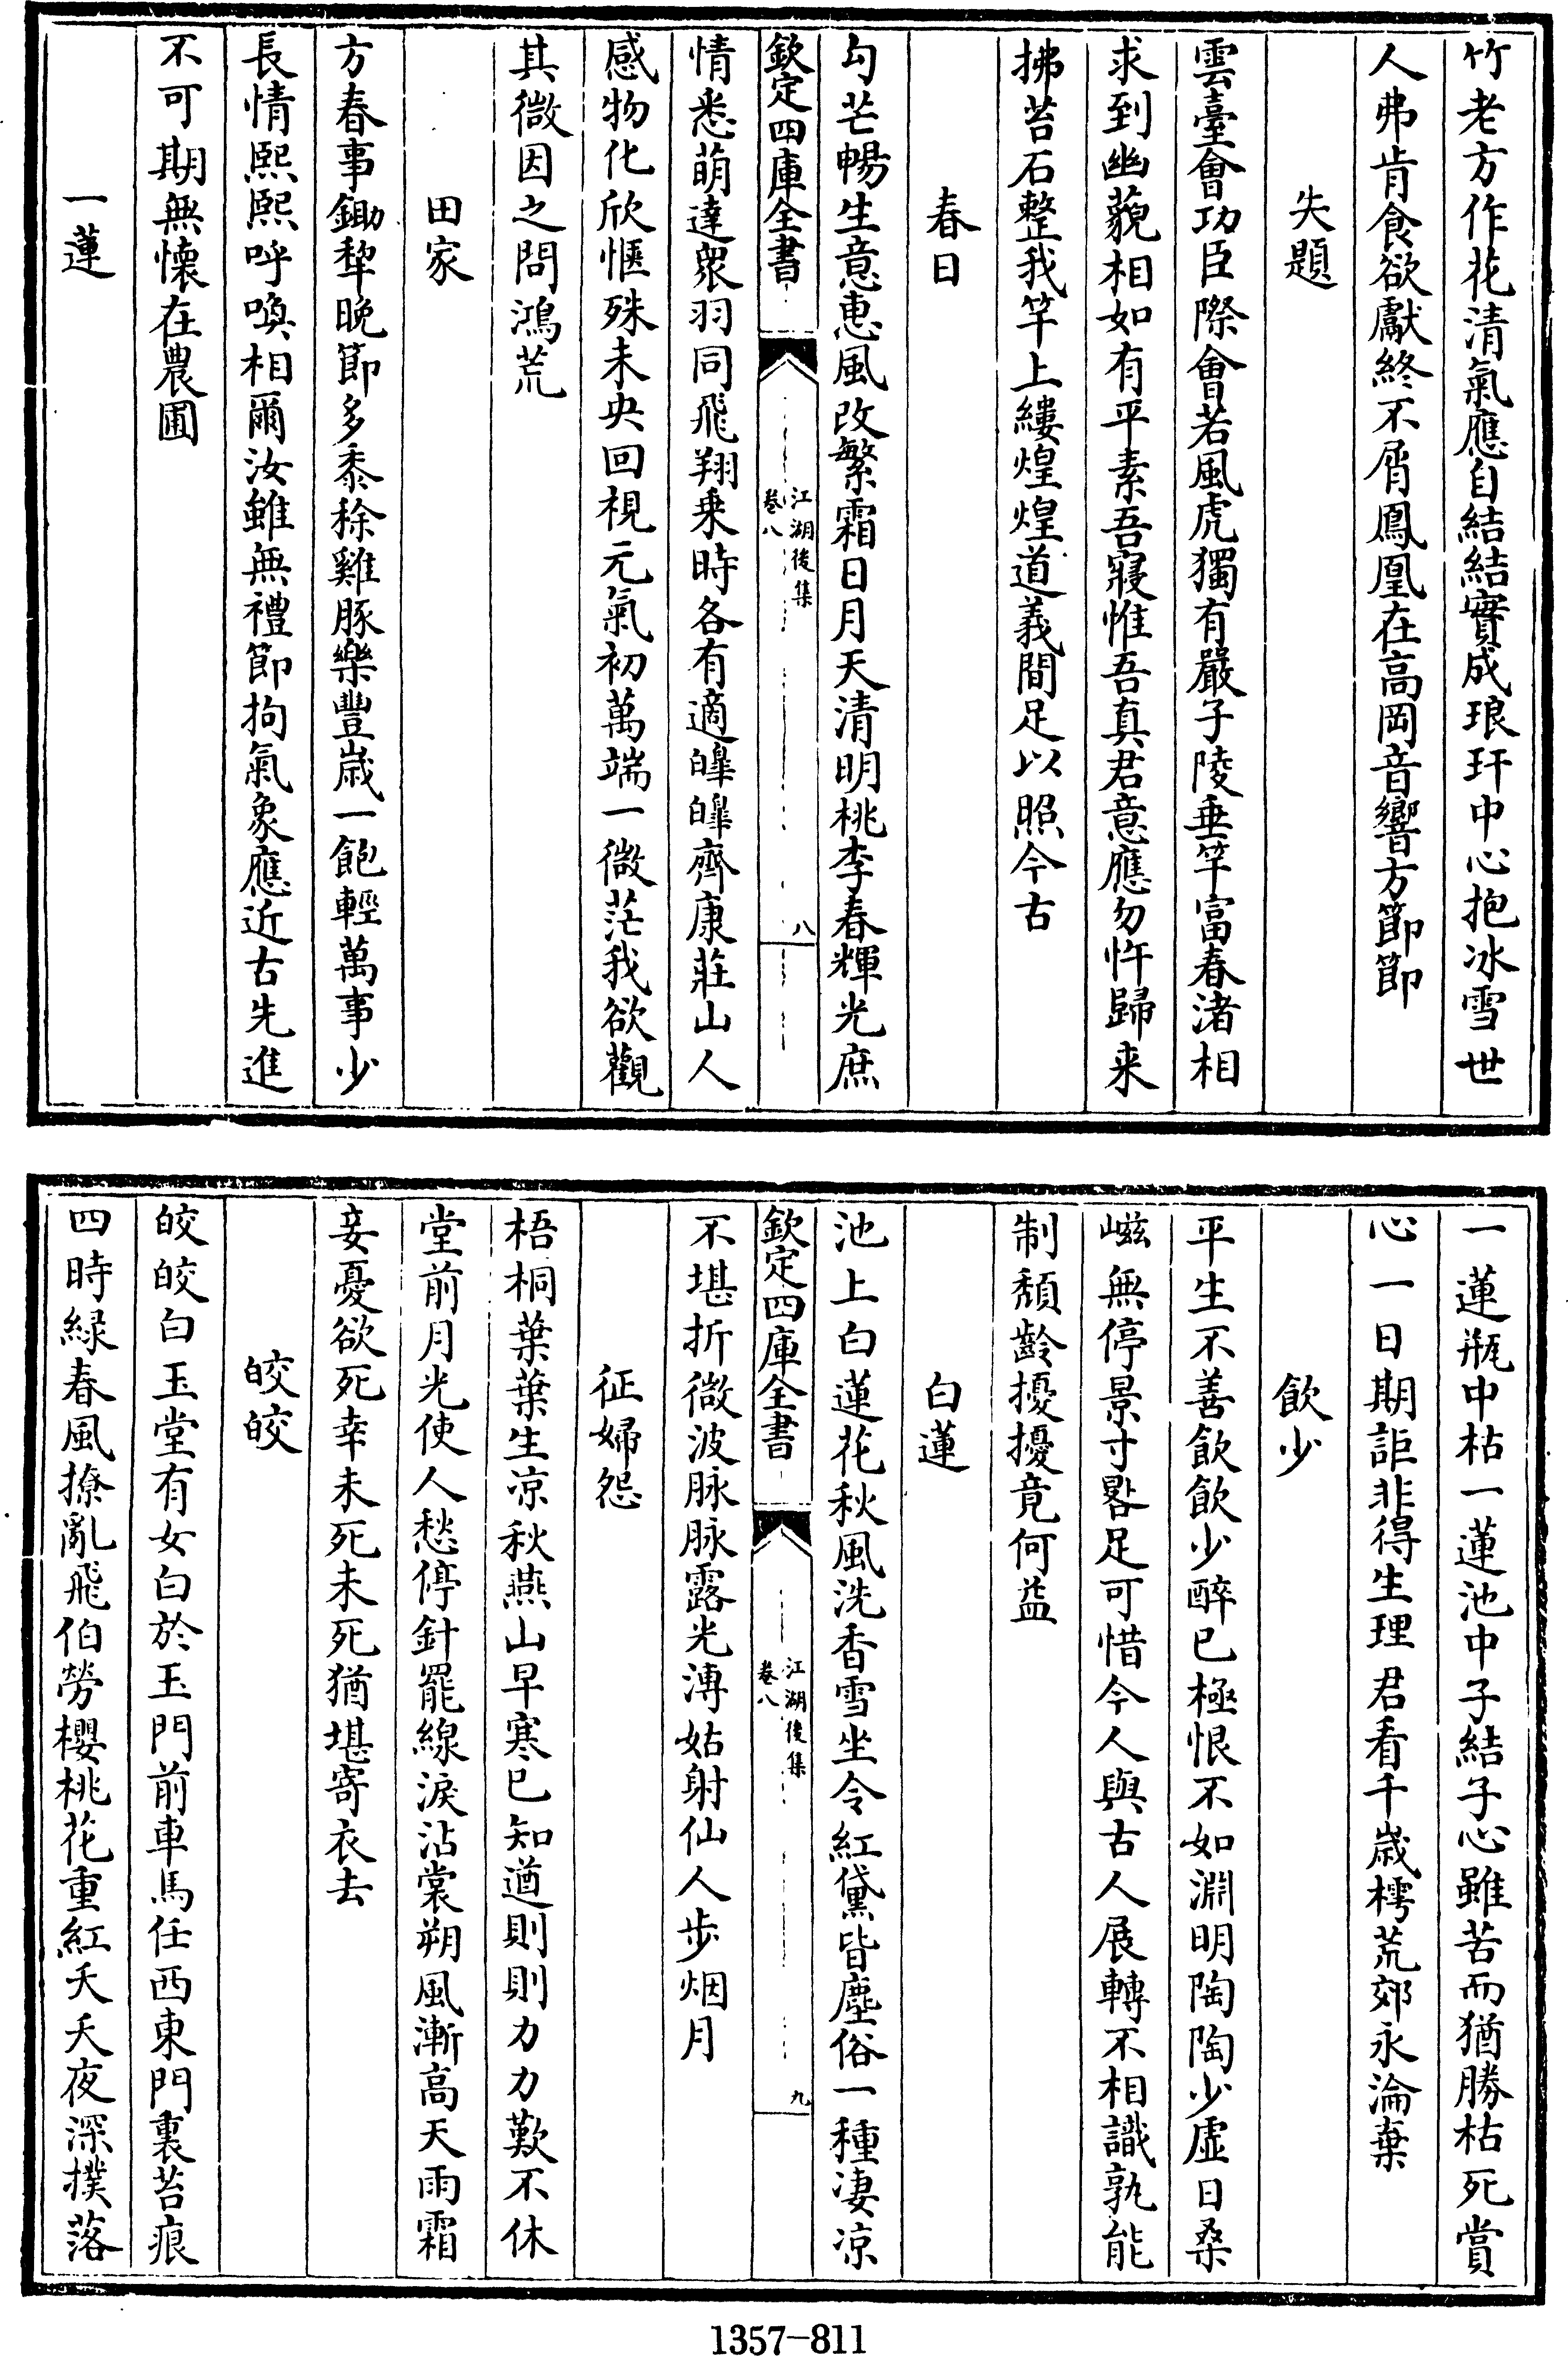 竹老方作花清氣應自結結實成琅玕中心抱冰雪世
人弗肯食欲獻終不屑鳳凰在高岡音響方節節
失題
雲臺會功臣際會若風虎獨有嚴子陵垂竿富春渚相
求到幽藐相如有平素吾寢惟吾真君意應勿忤歸来
拂苔石整我竿上縷煌煌道義間足以照今古
春日
勾芒暢生意惠風改繁霜日月天清明桃李春輝光庶
欽定四庫全書
江湖後集
卷八
八
情悉萌達衆羽同飛翔乗時各有適皥皥齊康莊山人
感物化欣愜殊未央回視元氣初萬端一微茫我欲觀
其微因之問鴻荒
田家
方春事鋤犂晚節多黍稌雞豚樂豐嵗一飽輕萬事少
長情熙熙呼喚相爾汝雖無禮節拘氣象應近古先進
不可期無懷在農圃
一蓮
一蓮瓶中枯一蓮池中子結子心雖苦而猶勝枯死賞
心一日期詎非得生理君看千嵗樗荒郊永淪棄
飲少
平生不善飲飲少醉已極恨不如淵明陶陶少虛日桑
嵫無停景寸晷足可惜今人與古人展轉不相識孰能
制頹齡擾擾竟何益
白蓮
池上白蓮花秋風洗香雪坐令紅黛皆塵俗一種凄凉
欽定四庫全書
江湖後集
卷八
九
不堪折微波脉脉露光漙姑射仙人步烟月
征婦怨
梧桐葉葉生凉秋燕山早寒已知遒則則力力歎不休
堂前月光使人愁停針罷線淚沾裳朔風漸高天雨霜
妾憂欲死幸未死未死猶堪寄衣去
皎皎
皎皎白玉堂有女白於玉門前車馬任西東門裏苔痕
四時緑春風撩亂飛伯勞櫻桃花重紅夭夭夜深撲落
1357-811